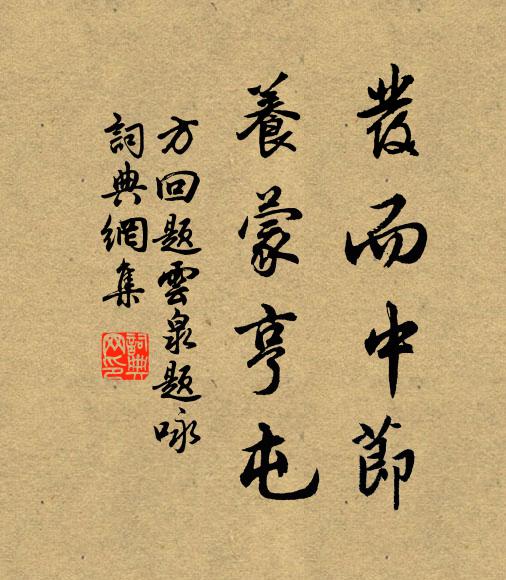 發而中節
養蒙亨屯
方回題雲泉題咏
詞典網集
詞典網印